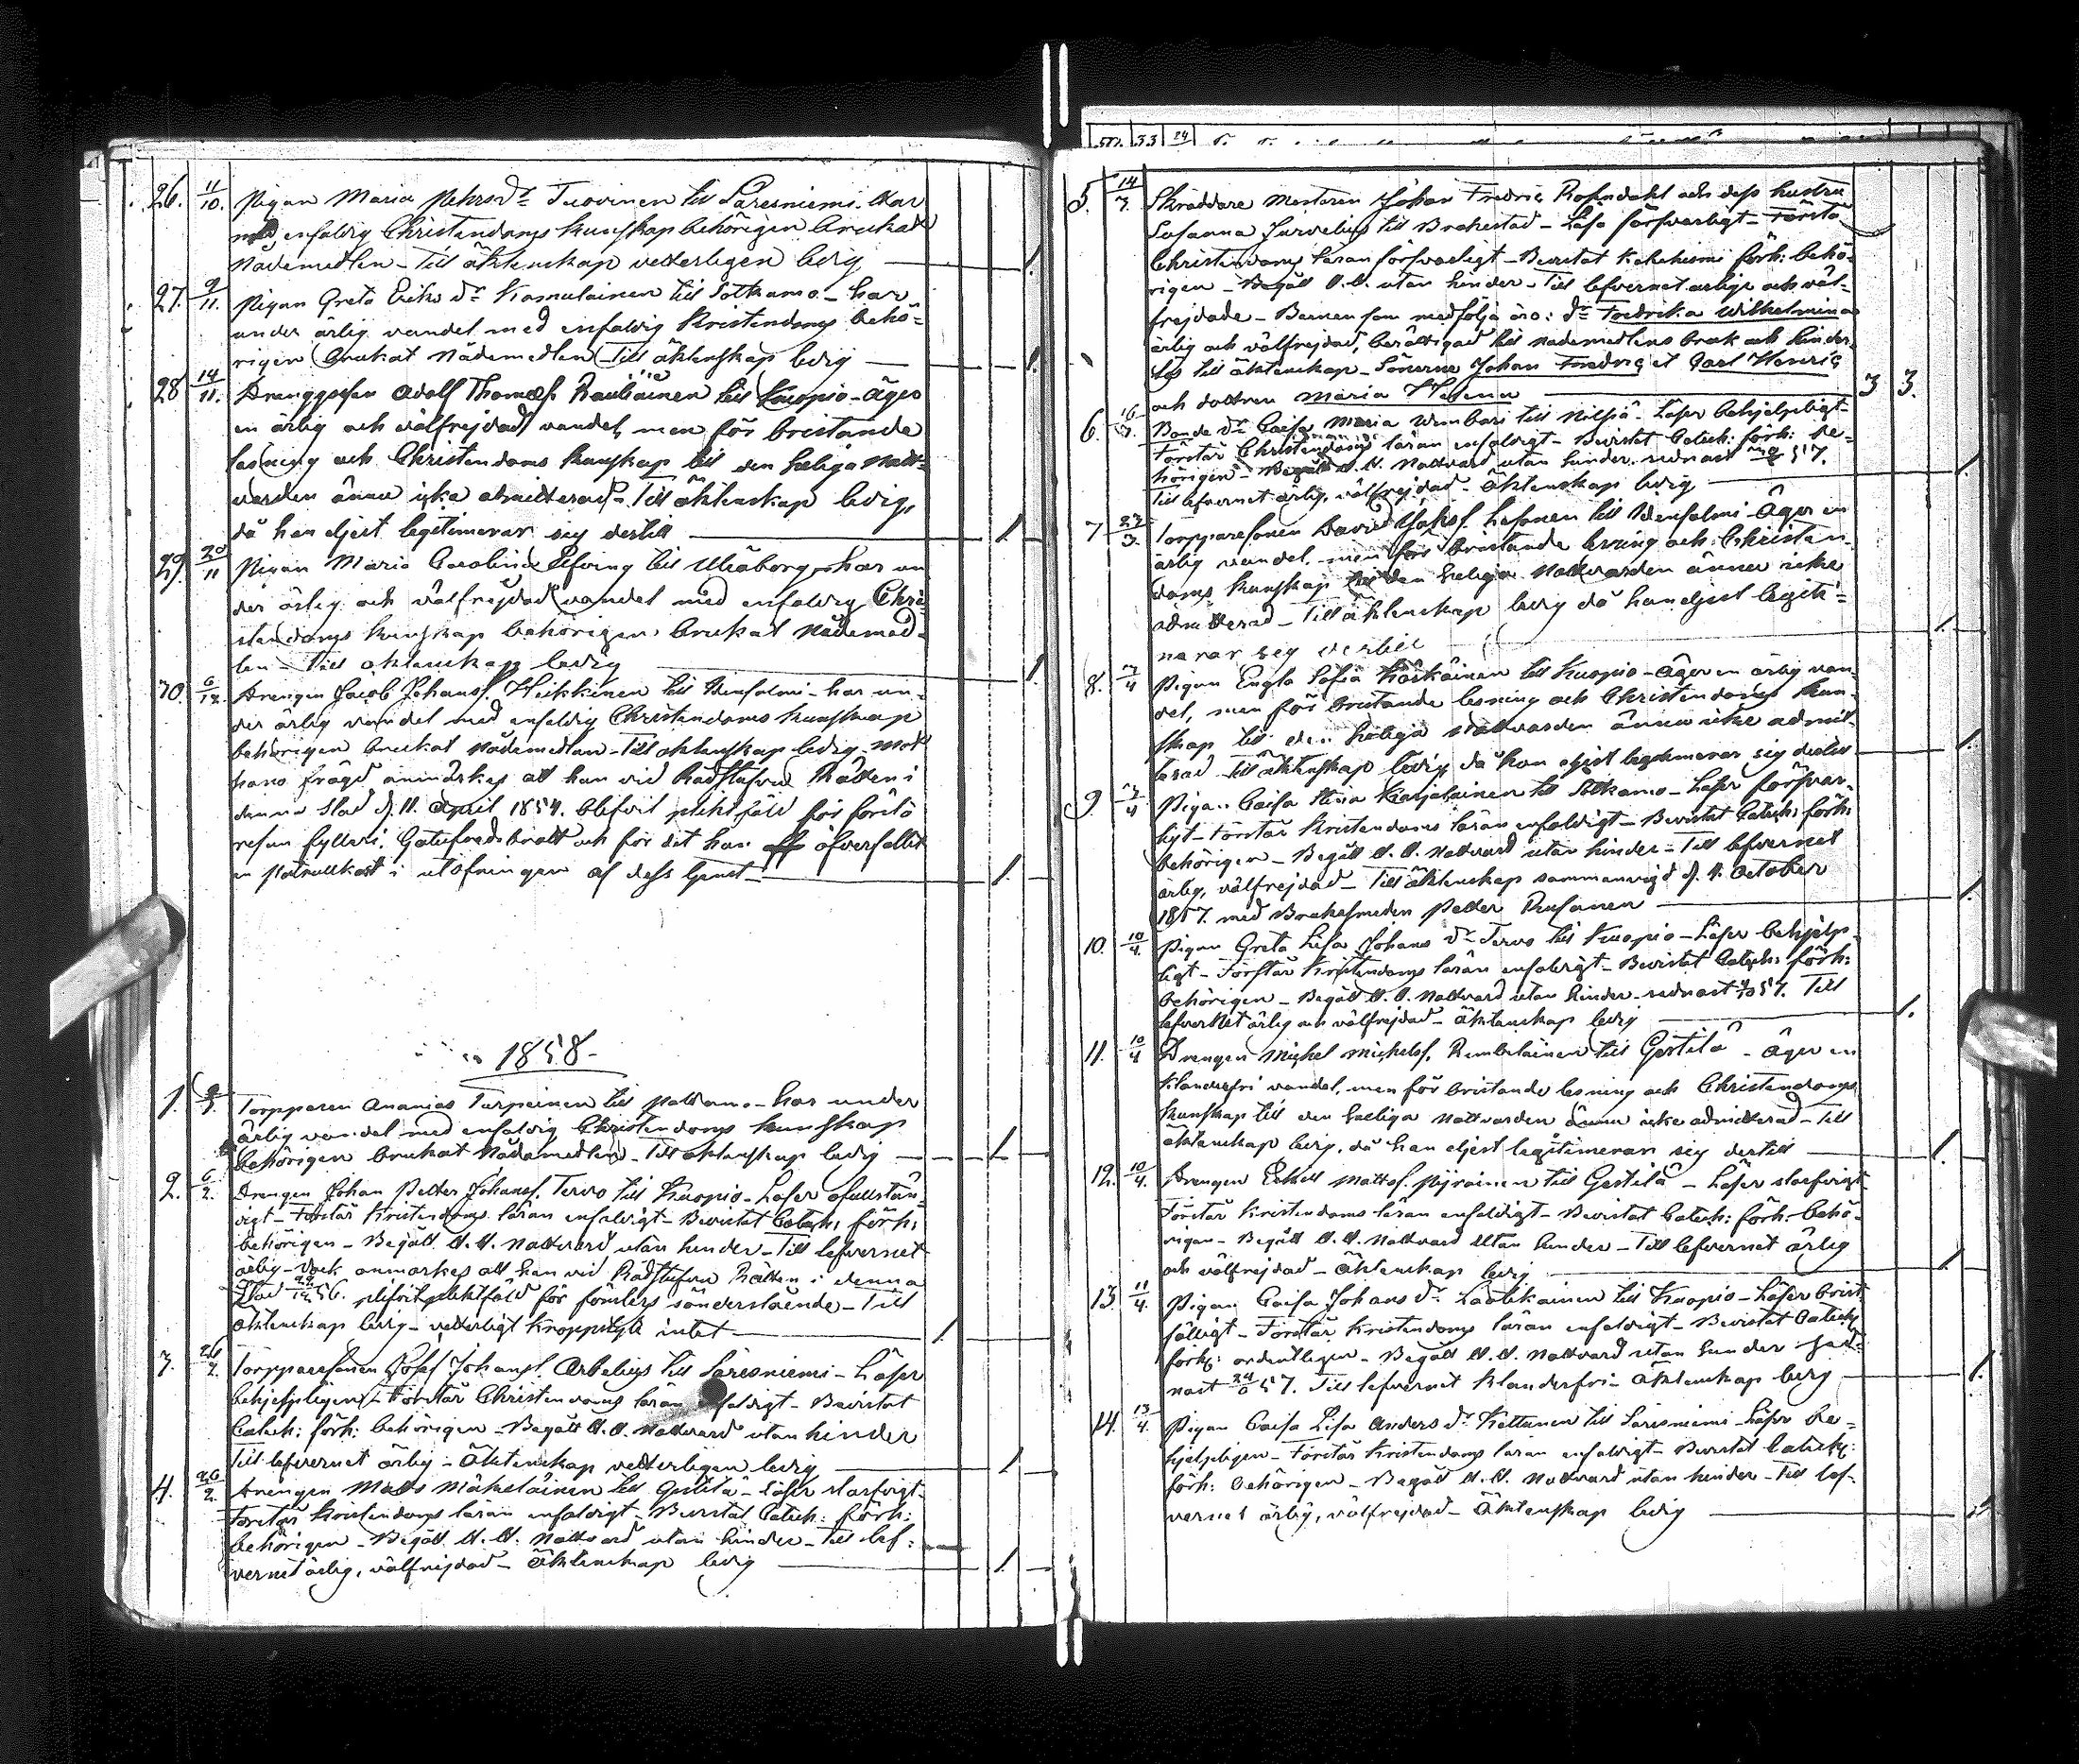 26. 11/10. Pigan Maria Pehrsdr Tuovinen till Säresniemi. Har
med enfaldig Christendoms kunskap behörigen brukat
Nådemedlen - Till äktenskap vetterligen ledig 1.
27. 9/11. Pigan Greta Eriksdr Kamulainen till Sotkamo - har
under ärlig vandel med enfaldig Kristendoms behö-
rigen brukat Nådemedlen - Till äktenskap ledig 1.
28 14/11. Drenggsson Adolf Thomass. Rautiainen till Kuopio - äger
en ärlig och välfrejdad vandel, men för bristande
läsning och Christendoms kunskap till den heliga Natt-
varden ännu icke admitterad - Till äktenskap ledig,
då han eljest legitimerar sig dertill 1
29. 20/11 Pigan Maria Carolina Elfving till Uleåborg - har un
der ärlig och välfrejdad vandel med enfaldig Chri-
stendoms kunskap behörigen brukat Nådemed-
len - Till äktenskap ledig 1.
30. 6/12. Drengen Jacob Johanss. Heikkinen till Idensalmi - har un-
der ärlig vandel med enfaldig Christendoms kunskap
behörigen brukat Nådemedlen - Till äktenskap ledig. Mot
hans frägd anmärkes att han vid Rådstufvu Rätten i
denna stad d. 11. April 1854. blifvit pliktfäld för första
resan fylleri, Gatufredsbrott och för det han öfverfallit
en Patrullkarl i utöfningen af dess tjenst 1.
1858-
1. Torpparen Ananias Turpeinen till Paldamo - har under
ärlig vandel med enfaldig Christendoms kunskap
behörigen brukat Nådemedlen - Till äktenskap ledig 1
2. 6/2. Drengen Johan Petter Johanss. Tervo till Kuopio - Läser ofullstän-
digt - Förstår Kristendoms läran enfaldigt - Bevistat Catech: förh:
behörigen - Begått H. H. Nattvard utan hinder - Till lefvernet
ärlig - Dock anmärkes att han vid Rådstufvu Rätten i denna
Stad 56. blifvit pliktfäld för fönsters sönderslående - Till
Äktenskap ledig - vetterligt kroppslyte intet 1.
3. 2. Torpparesonen Josef Johanss. Arbelius till Säresniemi - Läser
behjelpligen - Förstår Christendoms läran enfaldigt - Bevistat
Catech: förh: behörigen - Begått H. H. Nattvard utan hinder
Till lefvernet ärlig - Äktenskap vetterligen ledig 1
4. 26/2. Drengen Matts Mäkeläinen till Gestilä - Läser slarfvigt.
Förstår Kristendoms läran enfaldigt - Bevistat Catech: förh:
behörigen - Begått H. H. Nattvard utan hinder - Till lef-
vernet ärlig, välfrejdad - Äktenskap ledig 1.
5. 14/3. Skräddare Mästaren Johan Fredric Rosendahl och dess hustru
Susanna Jurvelius till Brahestad - Läsa försvarligt - Förstå
Christendoms läran försvarligt - Bevistat Katekismi förh: behö-
rigen - Begått H. H. utan hinder - Till lefvernet ärlige och väl-
frejdade - Barnen som medfölja äro: dr Fredrika Wilhelmina
ärlig och välfrejdad, berättigad till nådemedlens bruk och hinder-
lös till äktenskap - Sönerne Johan Fredric et Carl Henric
och dottren Maria Helena 3 3.
6. 16/3. Bonde dr Caisa Maria till Nilsiä - Läser behjelpligt
Förstår Christendoms läran enfaldigt - Bevistat Catech: förh: be-
hörigen - Begått H. H. Nattvard utan hinder sednast 57.
Till lefvernet ärlig, välfrejdad - Äktenskap ledig 1.
7 23/3. Torpparesonen David till Idensalmi - Äger en
ärlig vandel, men för bristande läsning och Christen-
doms kunskap till den heliga Nattvarden ännu icke
admitterad - Till äktenskap ledig då han eljest legiti-
merar sig dertill 1.
8. 7/4 Pigan Engla Sofia Kärkäinen till Kuopio - Äger en ärlig van-
del, men för bristande läsning och Christendoms kun-
skap till den heliga Nattvarden ännu icke admit-
terad - Till äktenskap ledig då hon eljest legitimerar sig dertill 1.
9. 7/4 Pigan Caisa Stina Karjalainen till Sotkamo - Läser försvar-
ligt - Förstår Kristendoms läran enfaldigt - Bevistat Catech: förh:
behörigen - Begått H. H. Nattvard utan hinder - Till lefvernet
ärlig, välfrejdad - Till äktenskap sammanvigd d. 4. October
1857. med Petter Rusanen 1.
10. 10/4. Pigan Greta Lisa Johans dr Tervo till Kuopio - Läser behjelp-
ligt - Förstår Kristendoms läran enfaldigt - Bevistat Catech: förh:
behörigen - Begått H. H. Nattvard utan hinder - sednast 57. Till
lefvernet ärlig och välfrejdad - Äktenskap ledig 1.
11. 10/4 Drengen Michel Michelss. Rembelainen till Gestilä - Äger en
klanderfri vandel, men för bristande läsning och Christendoms
kunskap till den heliga Nattvarden ännu icke admitterad - Till
äktenskap ledig, då han eljest legitimerar sig dertill 1.
12. 10/4. Drengen Eskill Mattss. Pyrainen till Gestilä - Läser slarfvigt
Förstår Kristendoms läran enfaldigt - Bevistat Catech: förh: behö-
rigen - Begått H. H. Nattvard utan hinder - Till lefvernet ärlig
och välfrejdad - Äktenskap ledig 1
13. 11/4. Pigan Caisa Johans dr Laatikainen till Kuopio - Läser brist-
fälligt - Förstår Kristendoms läran enfaldigt - Bevistat Catech:
förh: ordentligen - Begått H. H. Nattvard utan hinder sed-
nast 57. Till lefvernet klanderfri - Äktenskap ledig 1.
14. 13/4 Pigan Caisa Lisa Anders dr Kettunen till Säresniemi - Läser be-
hjelpligen - Förstår Kristendoms läran enfaldigt - Bevistat Catech:
förh: behörigen - Begått H. H. Nattvard utan hinder - Till lef-
vernet ärlig, välfrejdad - Äktenskap ledig 1.